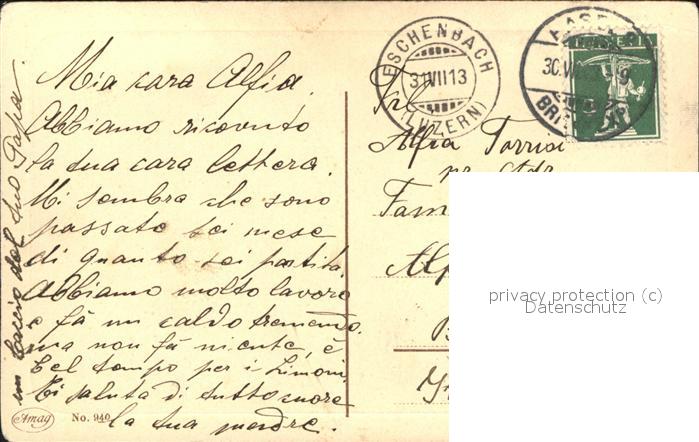 Mia cara Alfia.
Abbiamo ricevuto
la tua cara lettera.
Mi sembra che sono
passato sei mese
di quanto sei partita.
Abbiamo molto lavoro
e fà un caldo tremendo.
ma non fà niente, è
bel tempo per i Limoni.
Ti saluta di tutto cuore
la tua madre.
un bacio del tuo Papa.
ESCHENBACH
31.VII.13
(LUZERN)
BASEL
30.VII.
BRIEF EXP
Frl.
Alfia Torrisi
Fam
Alp
privacy protection (c)
Datenschutz
Amag
No. 940